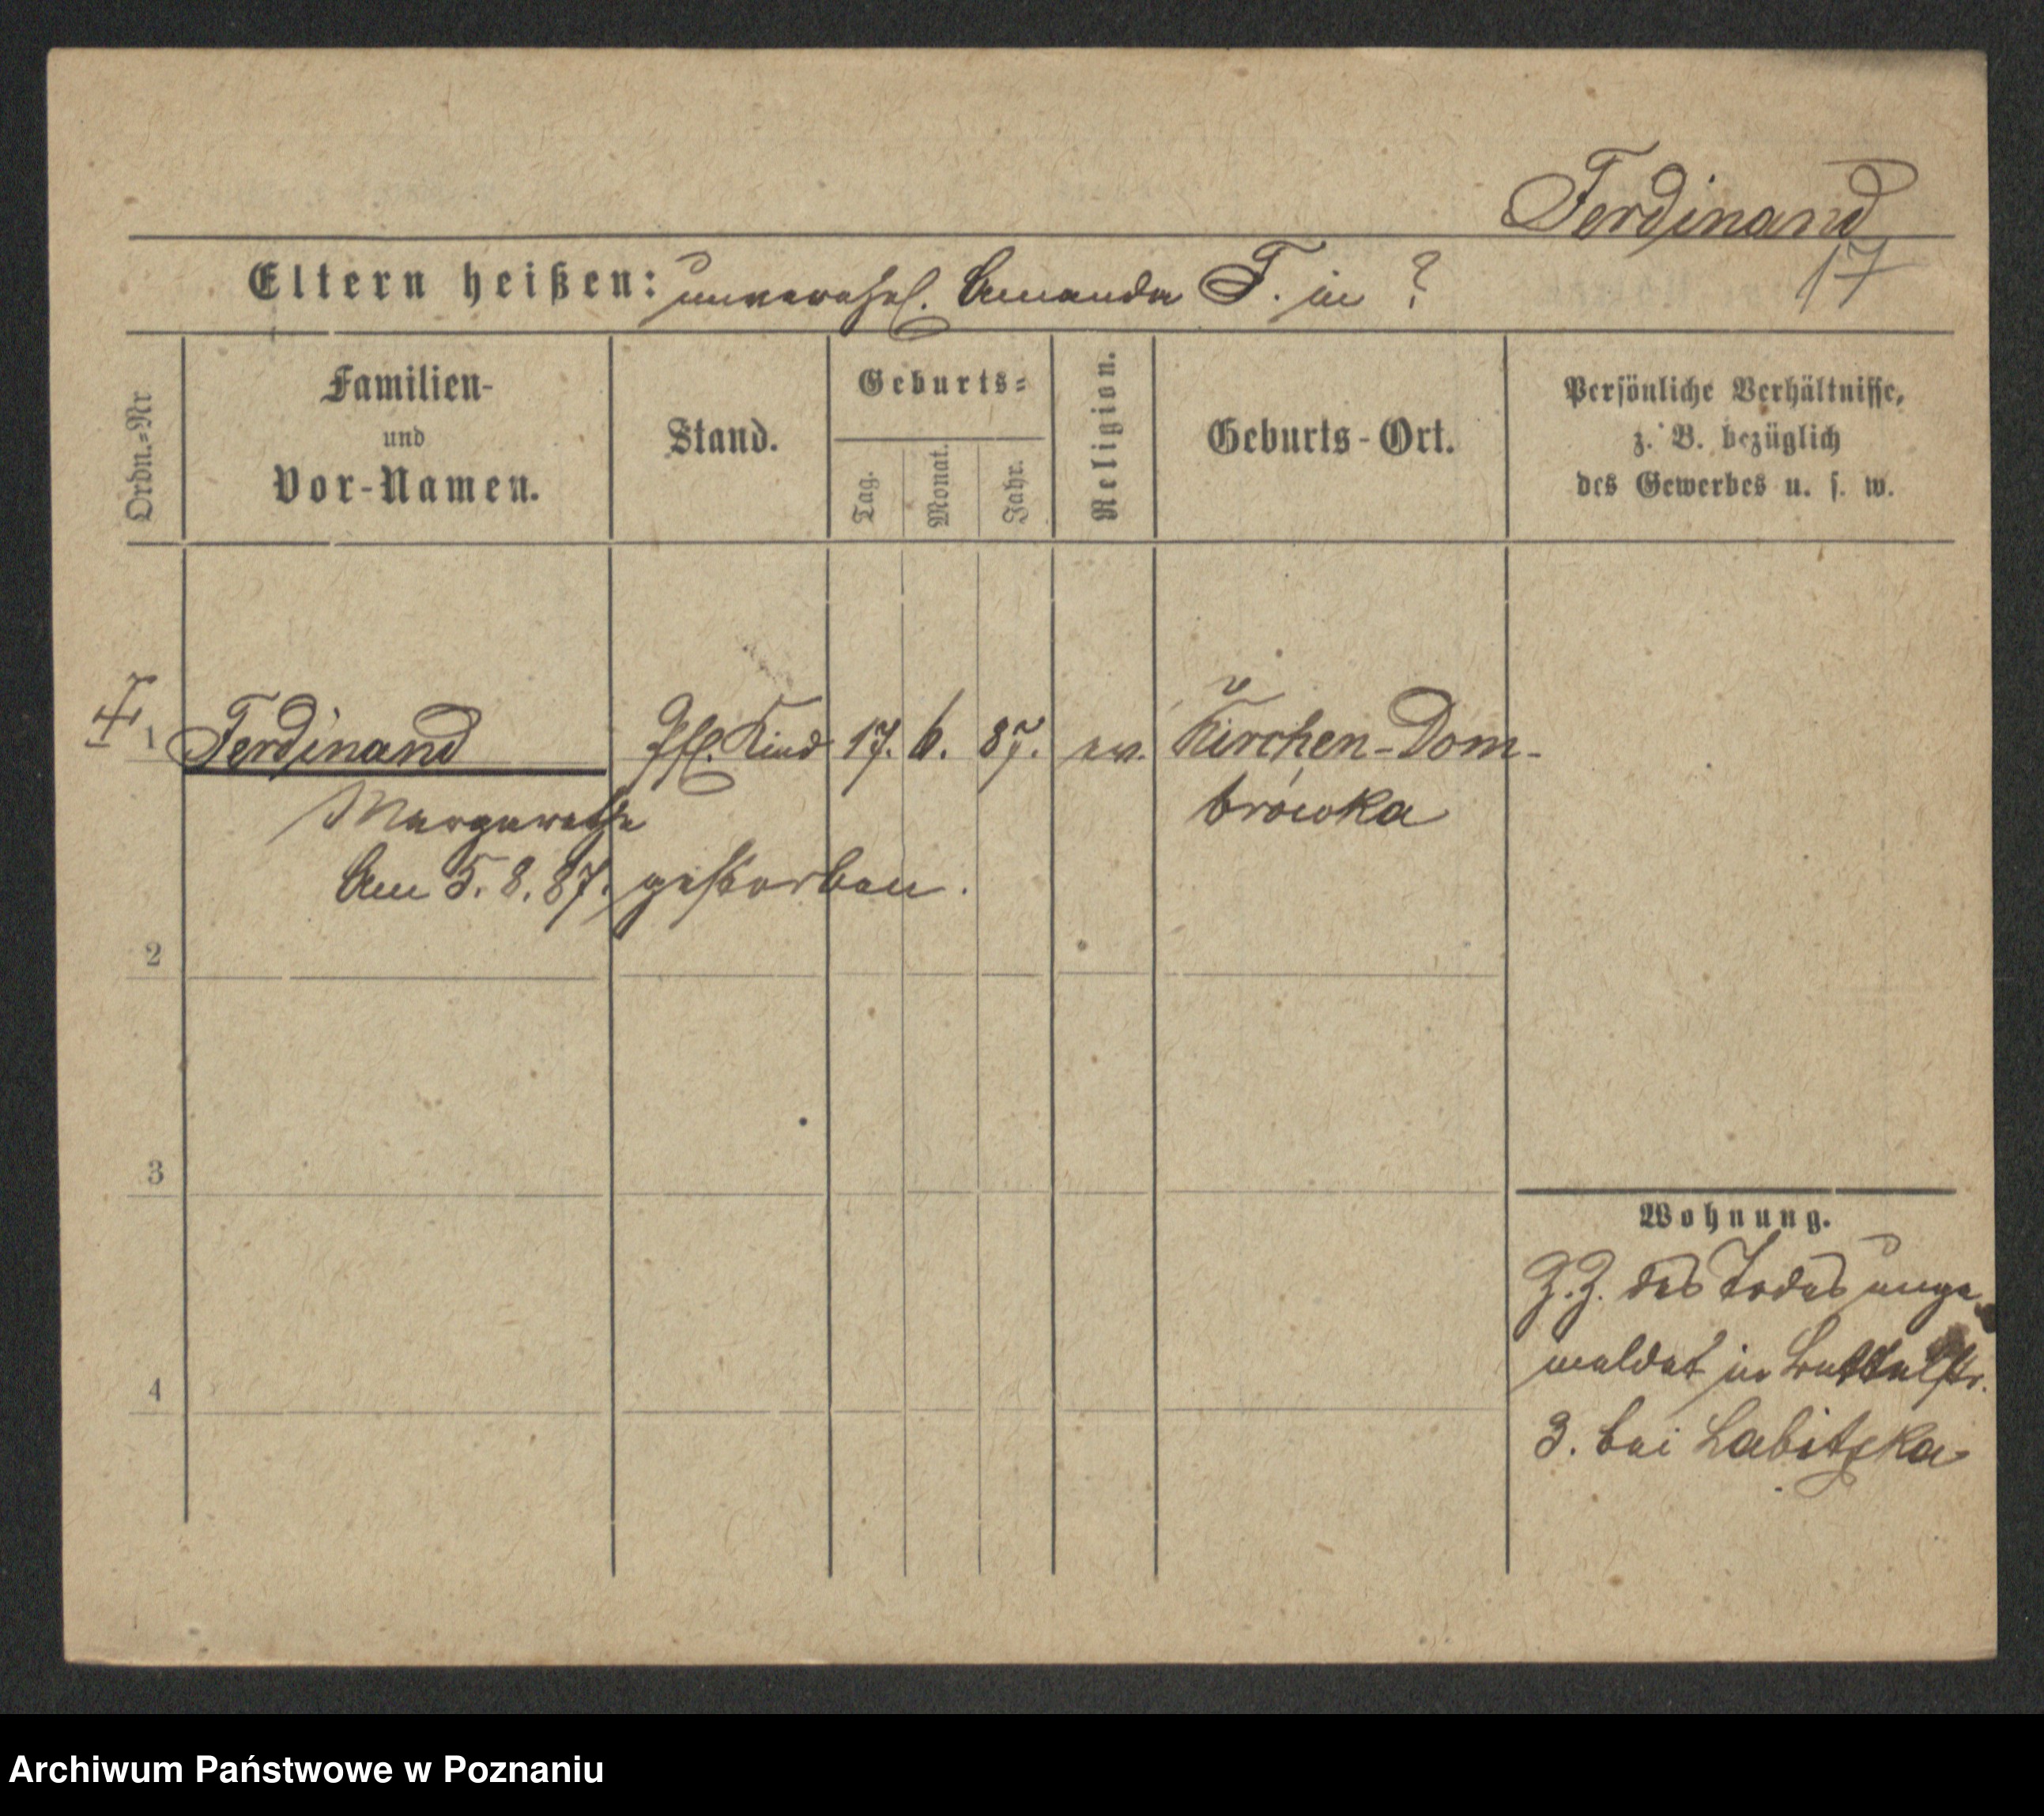 Ferdinand
17
Eltern heißen: unverehel. Amanda F. in ?
Ordn.=Nr
Familien-
und
Vor-Namen.
Stand.
Geburts=
Tag.
Monat.
Jahr.
Religion.
Geburts-Ort.
Persönliche Verhältnisse,
z. B. bezüglich
des Gewerbes u. s. w.
1 Ferdinand Pfl. Kind 17. 6. 87. ev. Kirchen-Dom-
Margarethe brówka
Am 5. 8. 87. gestorben.
2
3
4
Wohnung.
Z. Z. des Todes unge-
meldet in
3. bei Labitzke
Archiwum Państwowe w Poznaniu